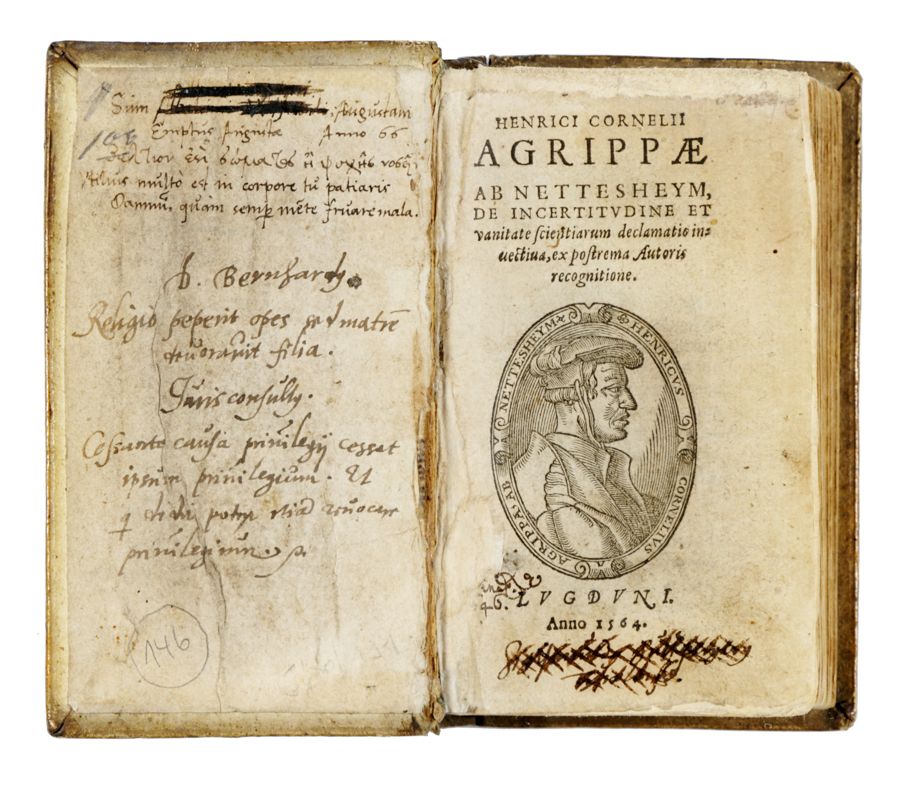 Sum , Augustani
Emptus Augustae Anno 66
Satius multo est in corpore tu patiaris
Damnu, quam semp mēte fruare mala.
D. Bernhardy.
Religio peperit opes sed matrē
devoravit filia.
Juris consulty.
Cessante causa privilegij cessat
ipsum privilegium. Et
q dedit potest etiā revocare
privilegium.
146
HENRICI CORNELII
AGRIPPÆ
AB NETTESHEYM,
DE INCERTITVDINE ET
vanitate scientiarum declamatio in=
uectiua, ex postrema Autoris
recognitione.
HENRICVS CORNELIVS AGRIPPA. AB NETTESHEYM
LVGDVNI.
Anno 1564.